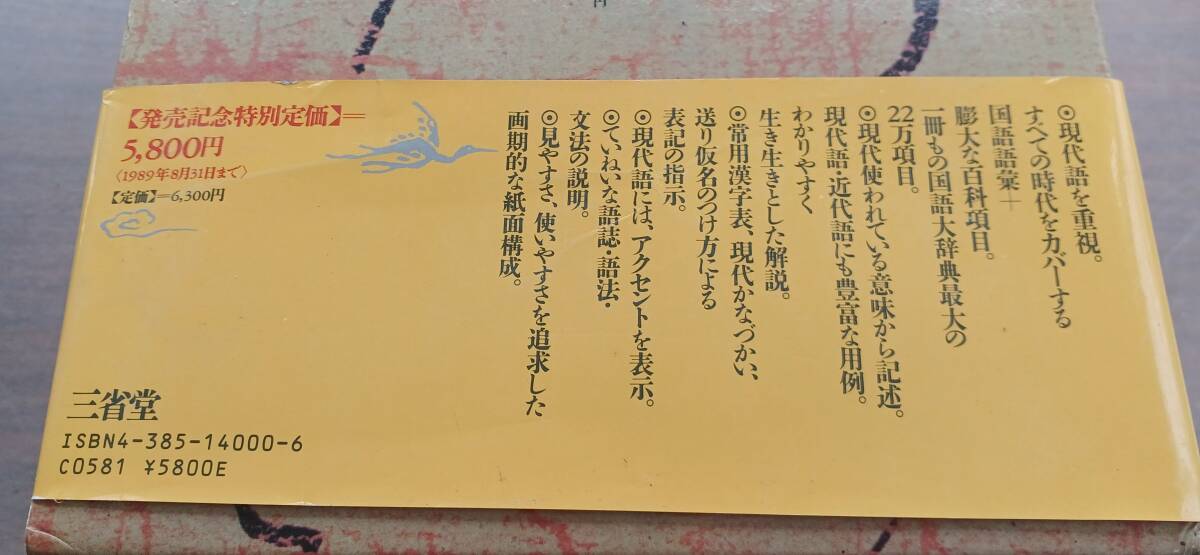 円
◉現代語を重視。
すべての時代をカバーする
国語語彙＋
膨大な百科項目。
一冊もの国語大辞典最大の
22万項目。
◉現代使われている意味から記述。
現代語・近代語にも豊富な用例。
わかりやすく
生き生きとした解説。
◉常用漢字表、現代かなづかい、
送り仮名のつけ方による
表記の指示。
◉現代語には、アクセントを表示。
◉ていねいな語誌・語法・
文法の説明。
◉見やすさ、使いやすさを追求した
画期的な紙面構成。
【発売記念特別定価】＝
5,800円
〈1989年8月31日まで〉
【定価】＝6,300円
三省堂
ISBN4-385-14000-6
C0581 ¥5800E